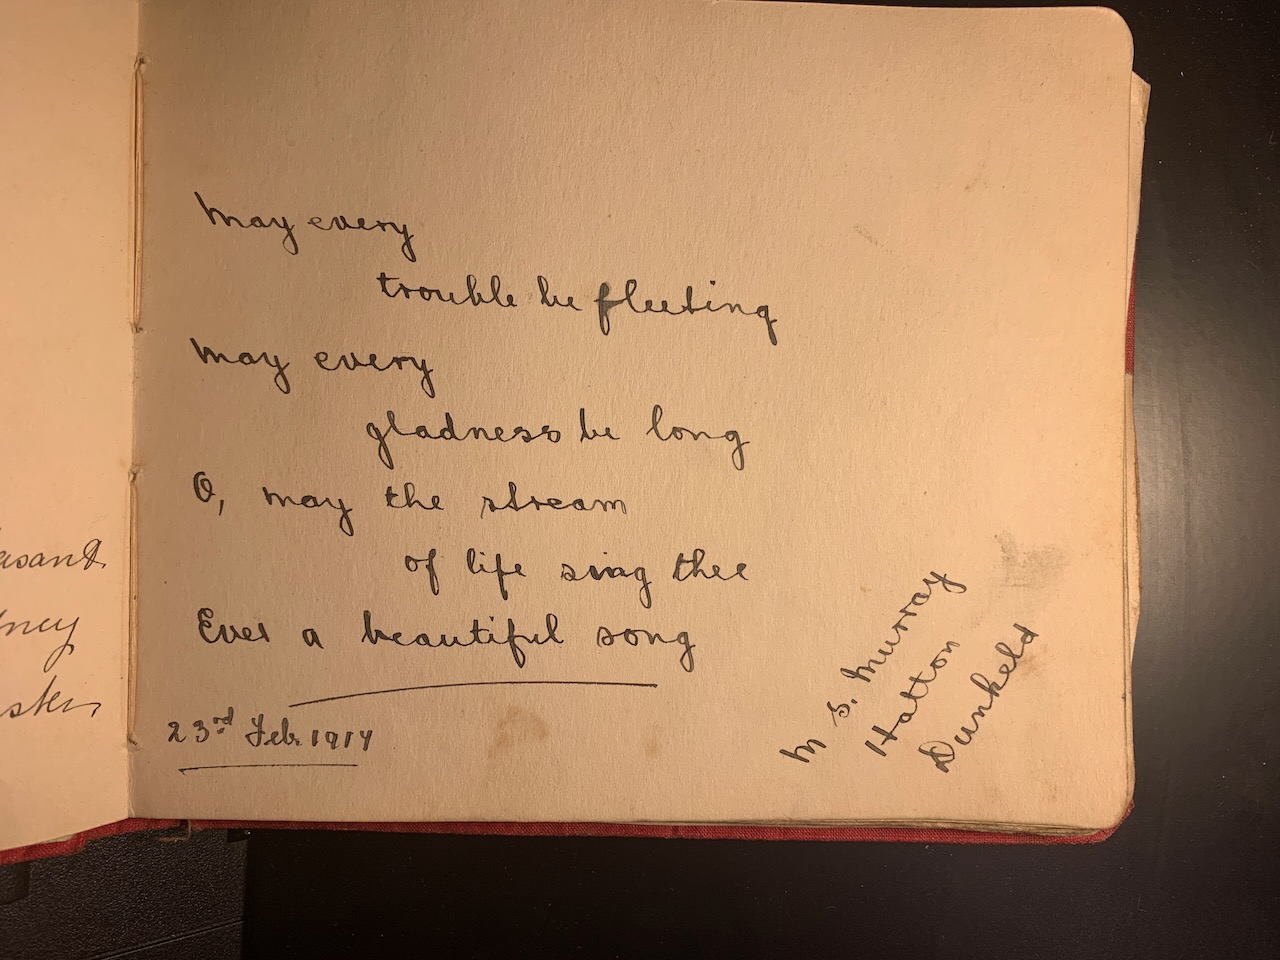 May every
trouble be fleeting
May every
gladness be long
O, may the stream
of life sing thee
Ever a beautiful song
23rd Feb. 1914
M S. Murray
Hatton
Dunkeld